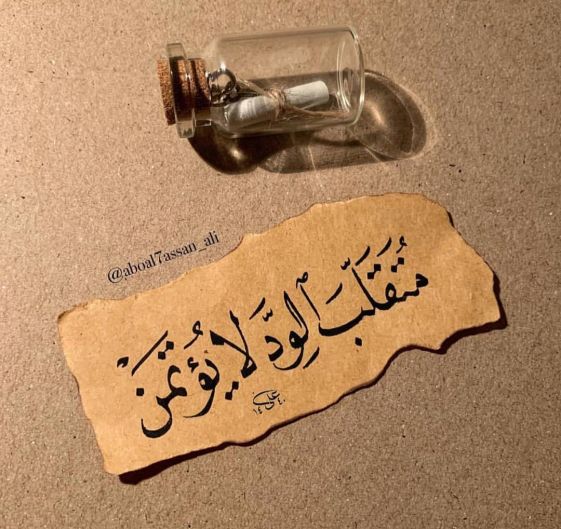 @aboal7assan_ali
مُتَقَلِّبَ ٱلوِدَّ لَا يُؤتَمَنْ
علي
١٤٤٠